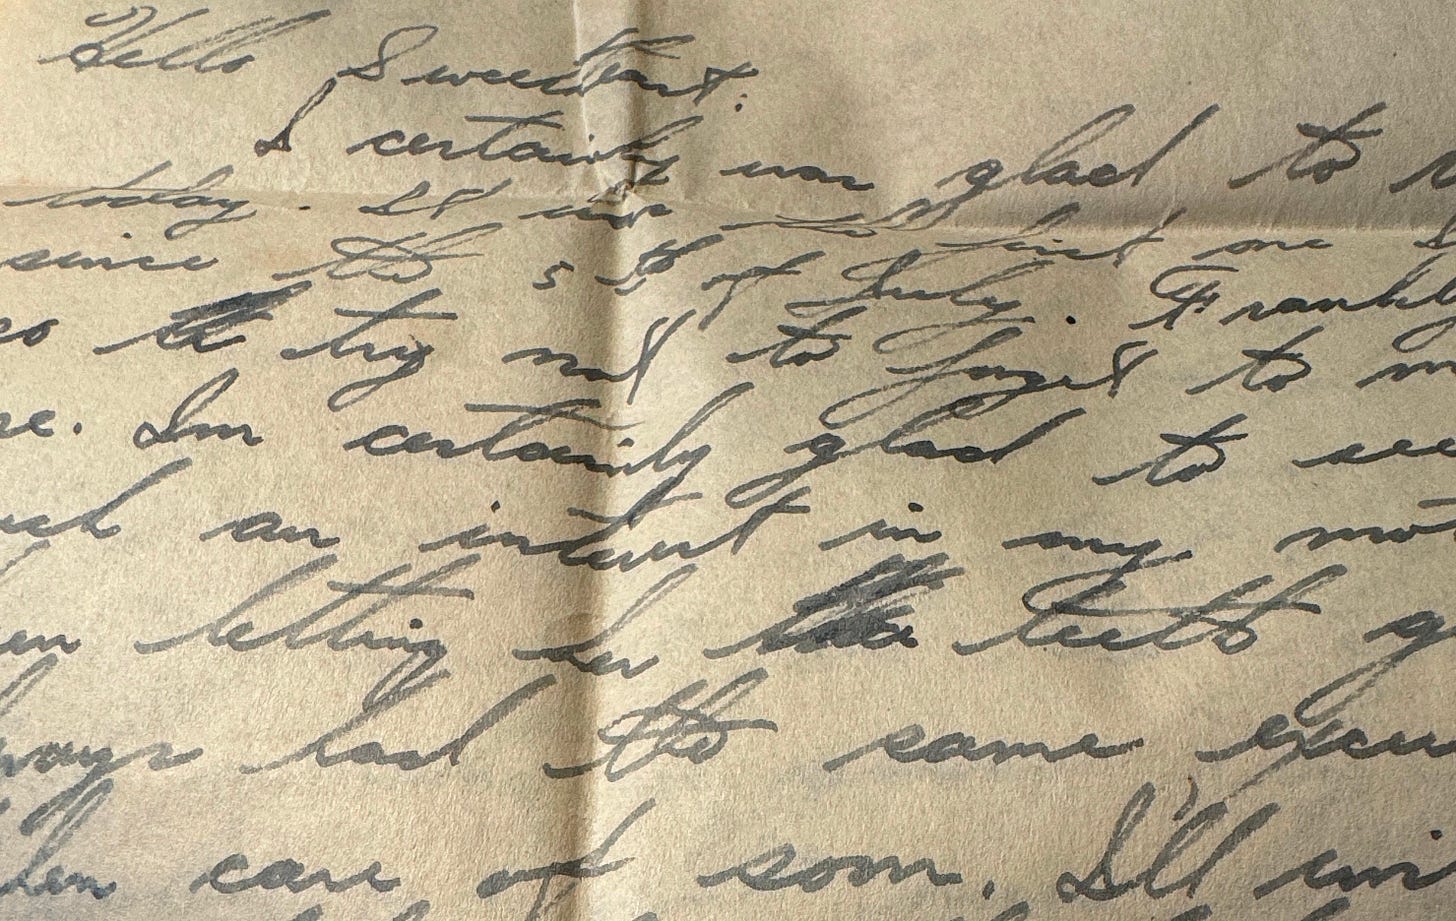 Hello Sweetheart:
I certainly was glad to
today. It was the first one I
since the 5th of July. Frankly
so try not to forget to
se. Im certainly glad to see
uch an interest in my mot
en letting her teeth g
lways had the same excu
ken care of soon. I'll wri